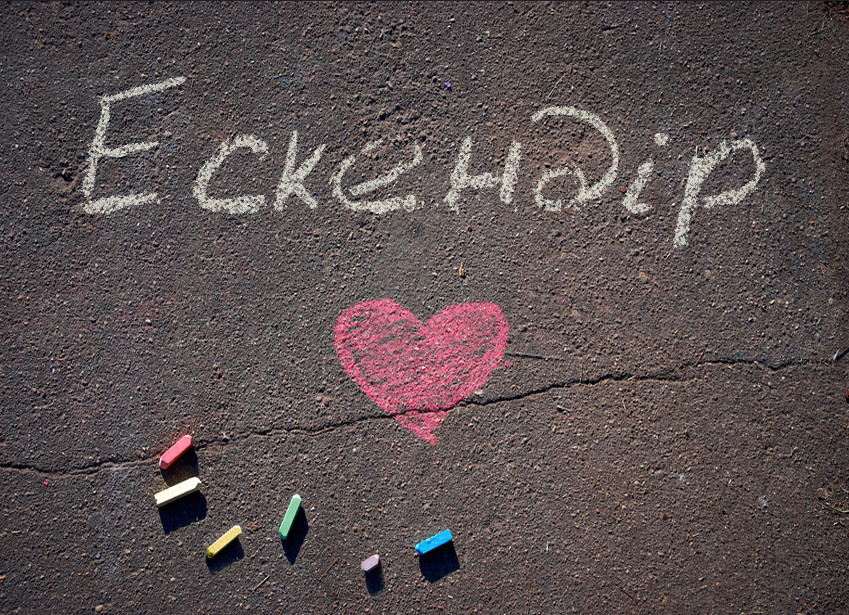 Ескендір